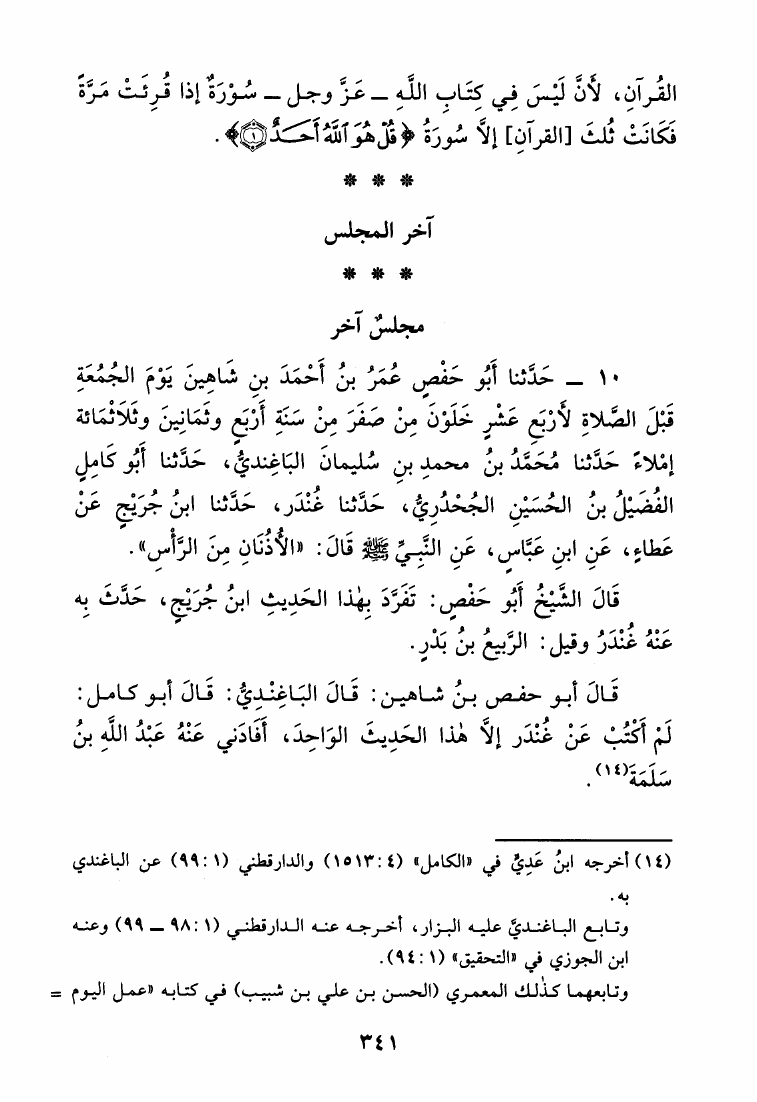 القُرآنِ، لأَنَّ لَيْسَ فِي كِتَابِ اللَّهِ ــ عَزَّ وجل ــ سُوْرَةٌ إذا قُرِئَتْ مَرَّةً
فَكَانَتْ ثُلثَ [القرآنِ] إلاَّ سُورَةُ ﴿قُلْ هُوَ ٱللَّهُ أَحَدٌ ۝١﴾.
* * *
آخر المجلس
* * *
مجلسٌ آخر
١٠ ــ حَدَّثنا أَبُو حَفْصٍ عُمَرُ بنُ أَحْمَدَ بنِ شَاهِينَ يَوْمَ الجُمُعَةِ
قَبْلَ الصَّلاةِ لأَرْبَعِ عَشْرٍ خَلَوْنَ مِنْ صَفَرَ مِنْ سَنَةِ أَرْبَعٍ وثَمَانِينَ وثَلاَثْمائة
إمْلاءً حَدَّثنا مُحَمَّدُ بنُ محمدِ بنِ سُليمانَ البَاغِنديُّ، حَدَّثنا أَبُو كَامِلٍ
الفُضَيْلُ بنُ الحُسَيْنِ الجُحْدُرِيُّ، حَدَّثنا غُنْدَر، حَدَّثنا ابنُ جُرَيْجٍ عَنْ
عَطاءٍ، عَنِ ابنِ عَبَّاسٍ، عَنِ النَّبِيِّ ﷺ قَالَ: «الأُذُنَانِ مِنَ الرَّأْسِ».
قَالَ الشَّيْخُ أَبُو حَفْصٍ: تَفَرَّدَ بِهٰذا الحَدِيثِ ابنُ جُرَيْجٍ، حَدَّثَ بِه
عَنْهُ غُنْدَرُ وقيل: الرَّبيعُ بنُ بَدْرٍ.
قَالَ أبو حفص بنُ شاهين: قَالَ البَاغِنْدِيُّ: قَالَ أبو كامل:
لَمْ أَكْتُبْ عَنْ غُنْدَر إلاَّ هٰذا الحَدِيثَ الوَاحِدَ، أَفَادَني عَنْهُ عَبْدُ اللَّهِ بنُ
سَلَمَةَ(١٤).
(١٤) أخرجه ابنُ عَدِيٍّ في «الكامل» (٤: ١٥١٣) والدارقطني (١: ٩٩) عن الباغندي
به.
وتابع الباغنديَّ عليه البزار، أخرجه عنه الدارقطني (١: ٩٨ ــ ٩٩) وعنه
ابن الجوزي في «التحقيق» (١: ٩٤).
وتابعهما كذٰلك المعمري (الحسن بن علي بن شبيب) في كتابه «عمل اليوم =
٣٤١